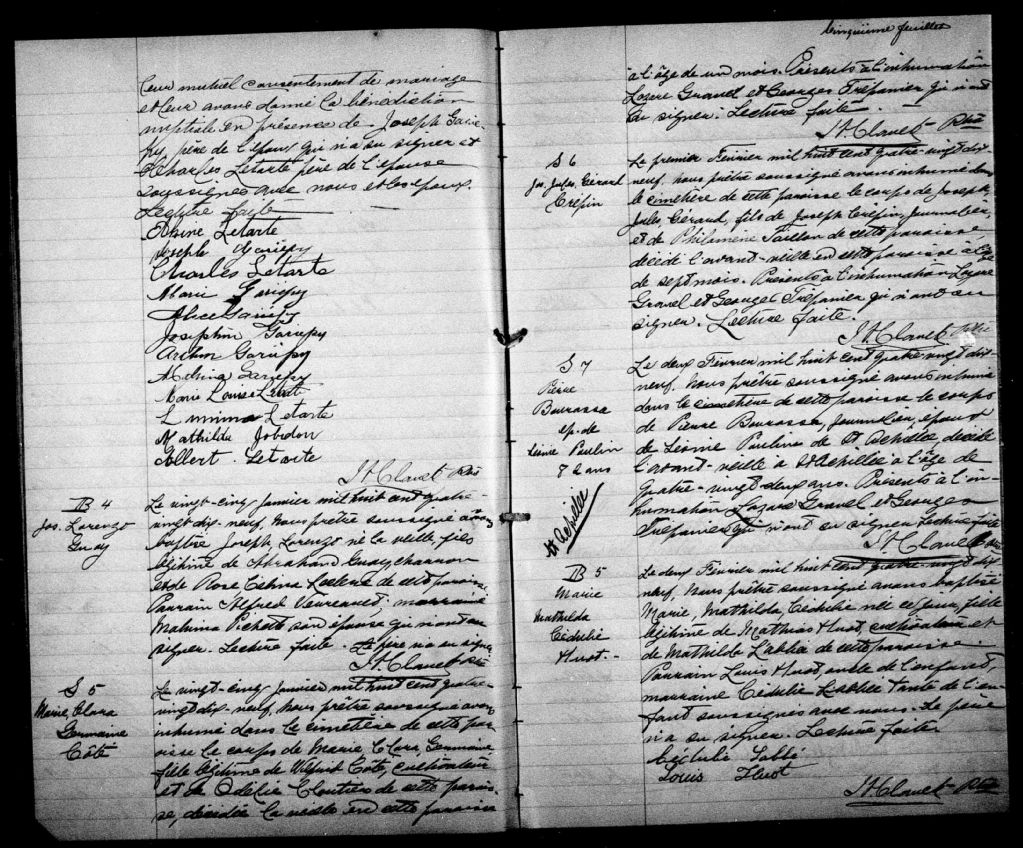 leur mutuel consentement de mariage
et leur avons donné la bénédiction
nuptiale en présence de Joseph Garié-
py, père de l'époux qui n'a su signer et
Charles Letarte père de l'épouse
soussignés avec nous et les époux.
Lecture faite
Letarte
Joseph Gariepy
Charles Letarte
Marie Gariepy
Alice Gariepy
Josephine Gariepy
Arthur Gariepy
Gariepy
Marie Louise
Letarte
Mathilda Jobidon
Albert Letarte
Ptre
B 4
Jos. Lorenzo
Guay
Le vingt-cinq Janvier mil huit cent quatre-
vingt dix-neuf, Nous prêtre soussigné avons
baptisé Joseph Lorenzo né la veille fils
légitime de Abraham Guay, charron
et de Rose de cette paroisse
Parrain Alfred marraine
Pichette son épouse qui n'ont su
signer. Lecture faite. Le père n'a su signer
Ptre
S 5
Marie, Clara
Germaine
Côté
Le vingt-cinq Janvier mil huit cent quatre-
vingt dix-neuf, Nous prêtre soussigné avons
inhumé dans le cimetière de cette par
oisse le corps de Marie Clara Germaine
fille légitime de Wilfrid Côté, cultivateur
et de Odélie Cloutier de cette parois-
se, décédée la veille en cette paroisse
Cinquième feuillet
à l'âge de un mois. Présents à l'inhumation
Lazare Gravel et Georges Trépanier qui n'ont
su signer. Lecture faite.
Ptre
S 6
Jos, Jules, Gérard
Crépin
Le premier Février mil huit cent quatre-vingt dix-
neuf, nous prêtre soussigné avons inhumé dans
le cimetière de cette paroisse le corps de Joseph
Jules, Gérard, fils de Joseph Crépin, Journalier,
et de Philomène Taillon de cette paroisse
décédé l'avant-veille en cette paroisse à l'âge
de sept mois. Présents à l'inhumation Lazare
Gravel et Georges Trépanier qui n'ont su
signer. Lecture faite.
Ptre
S 7
Pierre
Bourassa
ép. de
Léonie Paulin
82 ans
St Achillée
Le deux Février mil huit cent quatre vingt dix-
neuf, Nous prêtre soussigné avons inhumé
dans le cimetière de cette paroisse le corps
de Pierre Bourassa, Journalier, époux
de Léonie Pauline de St Achillée, décédé
l'avant-veille à St Achillée à l'âge de
quatre-vingt-deux ans. Présents à l'in-
humation Lazare Gravel et Georges
Trépanier qui n'ont su signer Lecture faite
Ptre
B 5
Marie
Mathilda
Cédulie
Huot.-
Le deux Février mil huit cent quatre vingt dix
neuf, Nous prêtre soussigné avons baptisé
Marie, Mathilda, Cédulie née ce jour, fille
légitime de Mathias Huot, cultivateur et
de Mathilda de cette paroisse
Parrain Louis Huot, oncle de l'enfant,
marraine Cédulie tante de l'en-
fant soussignés avec nous. Le père
n'a su signer. Lecture faite
Cédulie
Louis Huot
Ptre